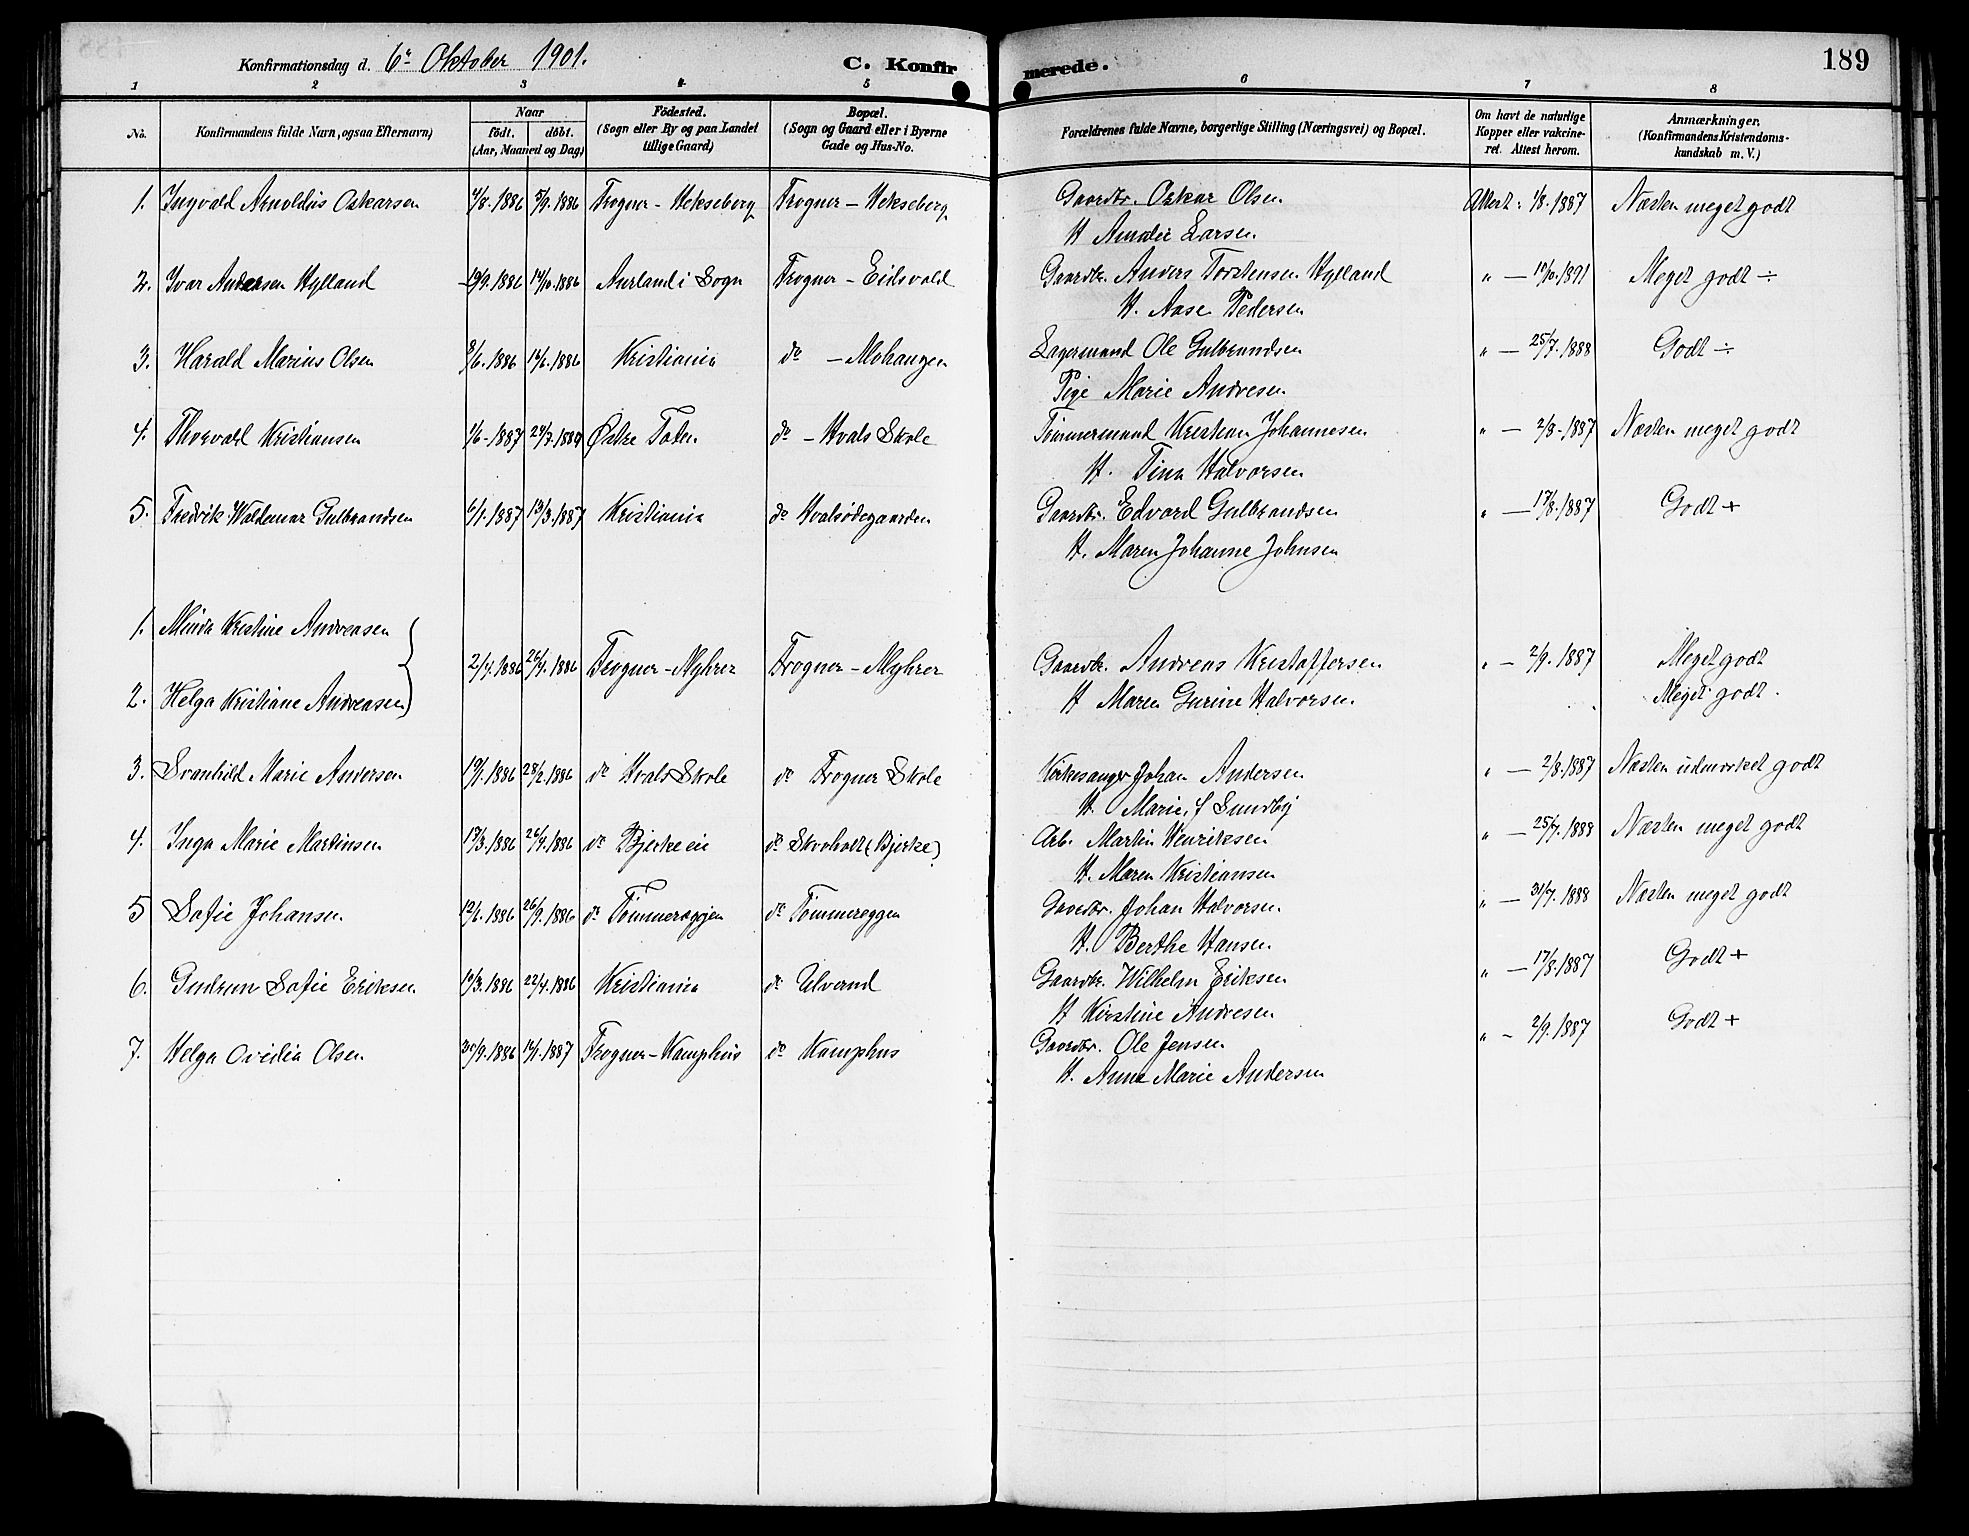 Konfirmationsdag d. 6te Oktober 1901. C. Konfirmerede. 189
1 2 3 4 5 6 7 8
No. Konfirmandens fulde Navn, ogsaa Efternavn) Naar født. døbt. (Aar, Maaned og Dag) Fødested. (Sogn eller By og paa Landet tillige Gaard) Bopæl. (Sogn og Gaard eller i Byerne Gade og Hus-No. Forældrenes fulde Navne, borgerlige Stilling (Næringsvei) og Bopæl. Om havt de naturlige Kopper eller vakcineret. Attest herom. Anmærkninger. (Konfirmandens Kristendomskundskab m. V.)
1. Ingvald Arnoldus Oskarsen 4/8.1886 5/9.1886 Frogner - Hekseberg Frogner - Hekseberg Gaardbr. Oskar Olsen Attest: 1/8.1887 Næsten meget godt
H Amalie Larsen.
2. Ivar Andersen Hylland 19/9.1886 14/10.1886 Aurland i Sogn Frogner - Eidsvold Gaardbr. Anders Torstensen Hylland " — 17/10.1891 Meget godt ÷
H. Aase Pedersen
3. Harald Marius Olsen 3/6.1886 14/6.1886 Kristiania do - Mohaugen Lagermand Ole Gulbrandsen " — 25/7.1888 Godt ÷
Pige Marie Andresen
4. Thorvald Kristiansen 1/6-1887 24/7.1887 Østre Toten do - Hvals Skole Tømmermand Kristian Johannesen " — 2/8-1887 Næsten meget godt
H. Tina Halvorsen
5. Fredrik Waldemar Gulbrandsen 6/1.1887 13/3.1887 Kristiania do Hvalsødegaarden Gaardbr. Edvard Gulbrandsen " — 17/8.1887 Godt +
H. Maren Johanne Johnsen
1. Minda Kristine Andreasen
2/4.1886 26/4.1886 Frogner - Myhrer Frogner - Myhrer Gaardbr. Andreas Kristoffersen " — 2/9.1887 Meget godt
2. Helga Kristiane Andreasen H Maren Gurine Halvorsen. Meget godt.
3. Svanhild Marie Andersen 19/1.1886 28/2.1886 do Hvals Skole do Frogner Skole Kirkesanger Johan Andersen " — 2/8.1887 Næsten udmærket godt
H. Marie, f Sundby
4. Inga Marie Martinsen 17/3.1886 26/9.1886 do Bjerke eie do Skovholt (Bjerke) Arb. Martin Henriksen " — 25/7.1888 Næsten meget godt
H. Maren Kristiansen
5 Sofie Johansen 1886 26/9.1886 do Tømmereggen do Tømmereggen Gaardbr. Johan Halvorsen. " — 31/7.1888 Næsten meget godt
H. Berthe Hansen.
6. Gudrun Sofie Eriksen 19/3.1886 22/4.1886 Kristiania do Ulverud Gaardbr. Wilhelm Eriksen " — 17/8.1887 Godt +
H Kirstine Andresen
7. Helga Ovidia Olsen 30/9.1886 1887 Frogner - Kamphus do Kamphus Gaardbr. Ole Jensen " - 2/9.1887 Godt +
H. Anne Marie Andersen